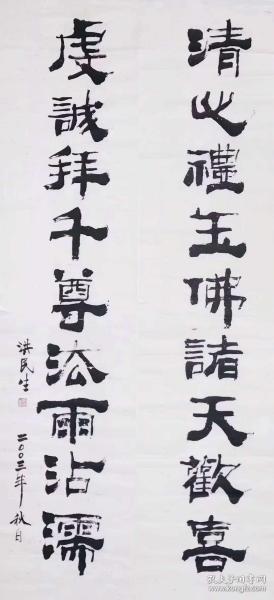 清心禮玉佛諸天歡喜
虔誠拜千尊法雨沾濡
洪民生
二〇〇三年秋日
孔夫子旧书网